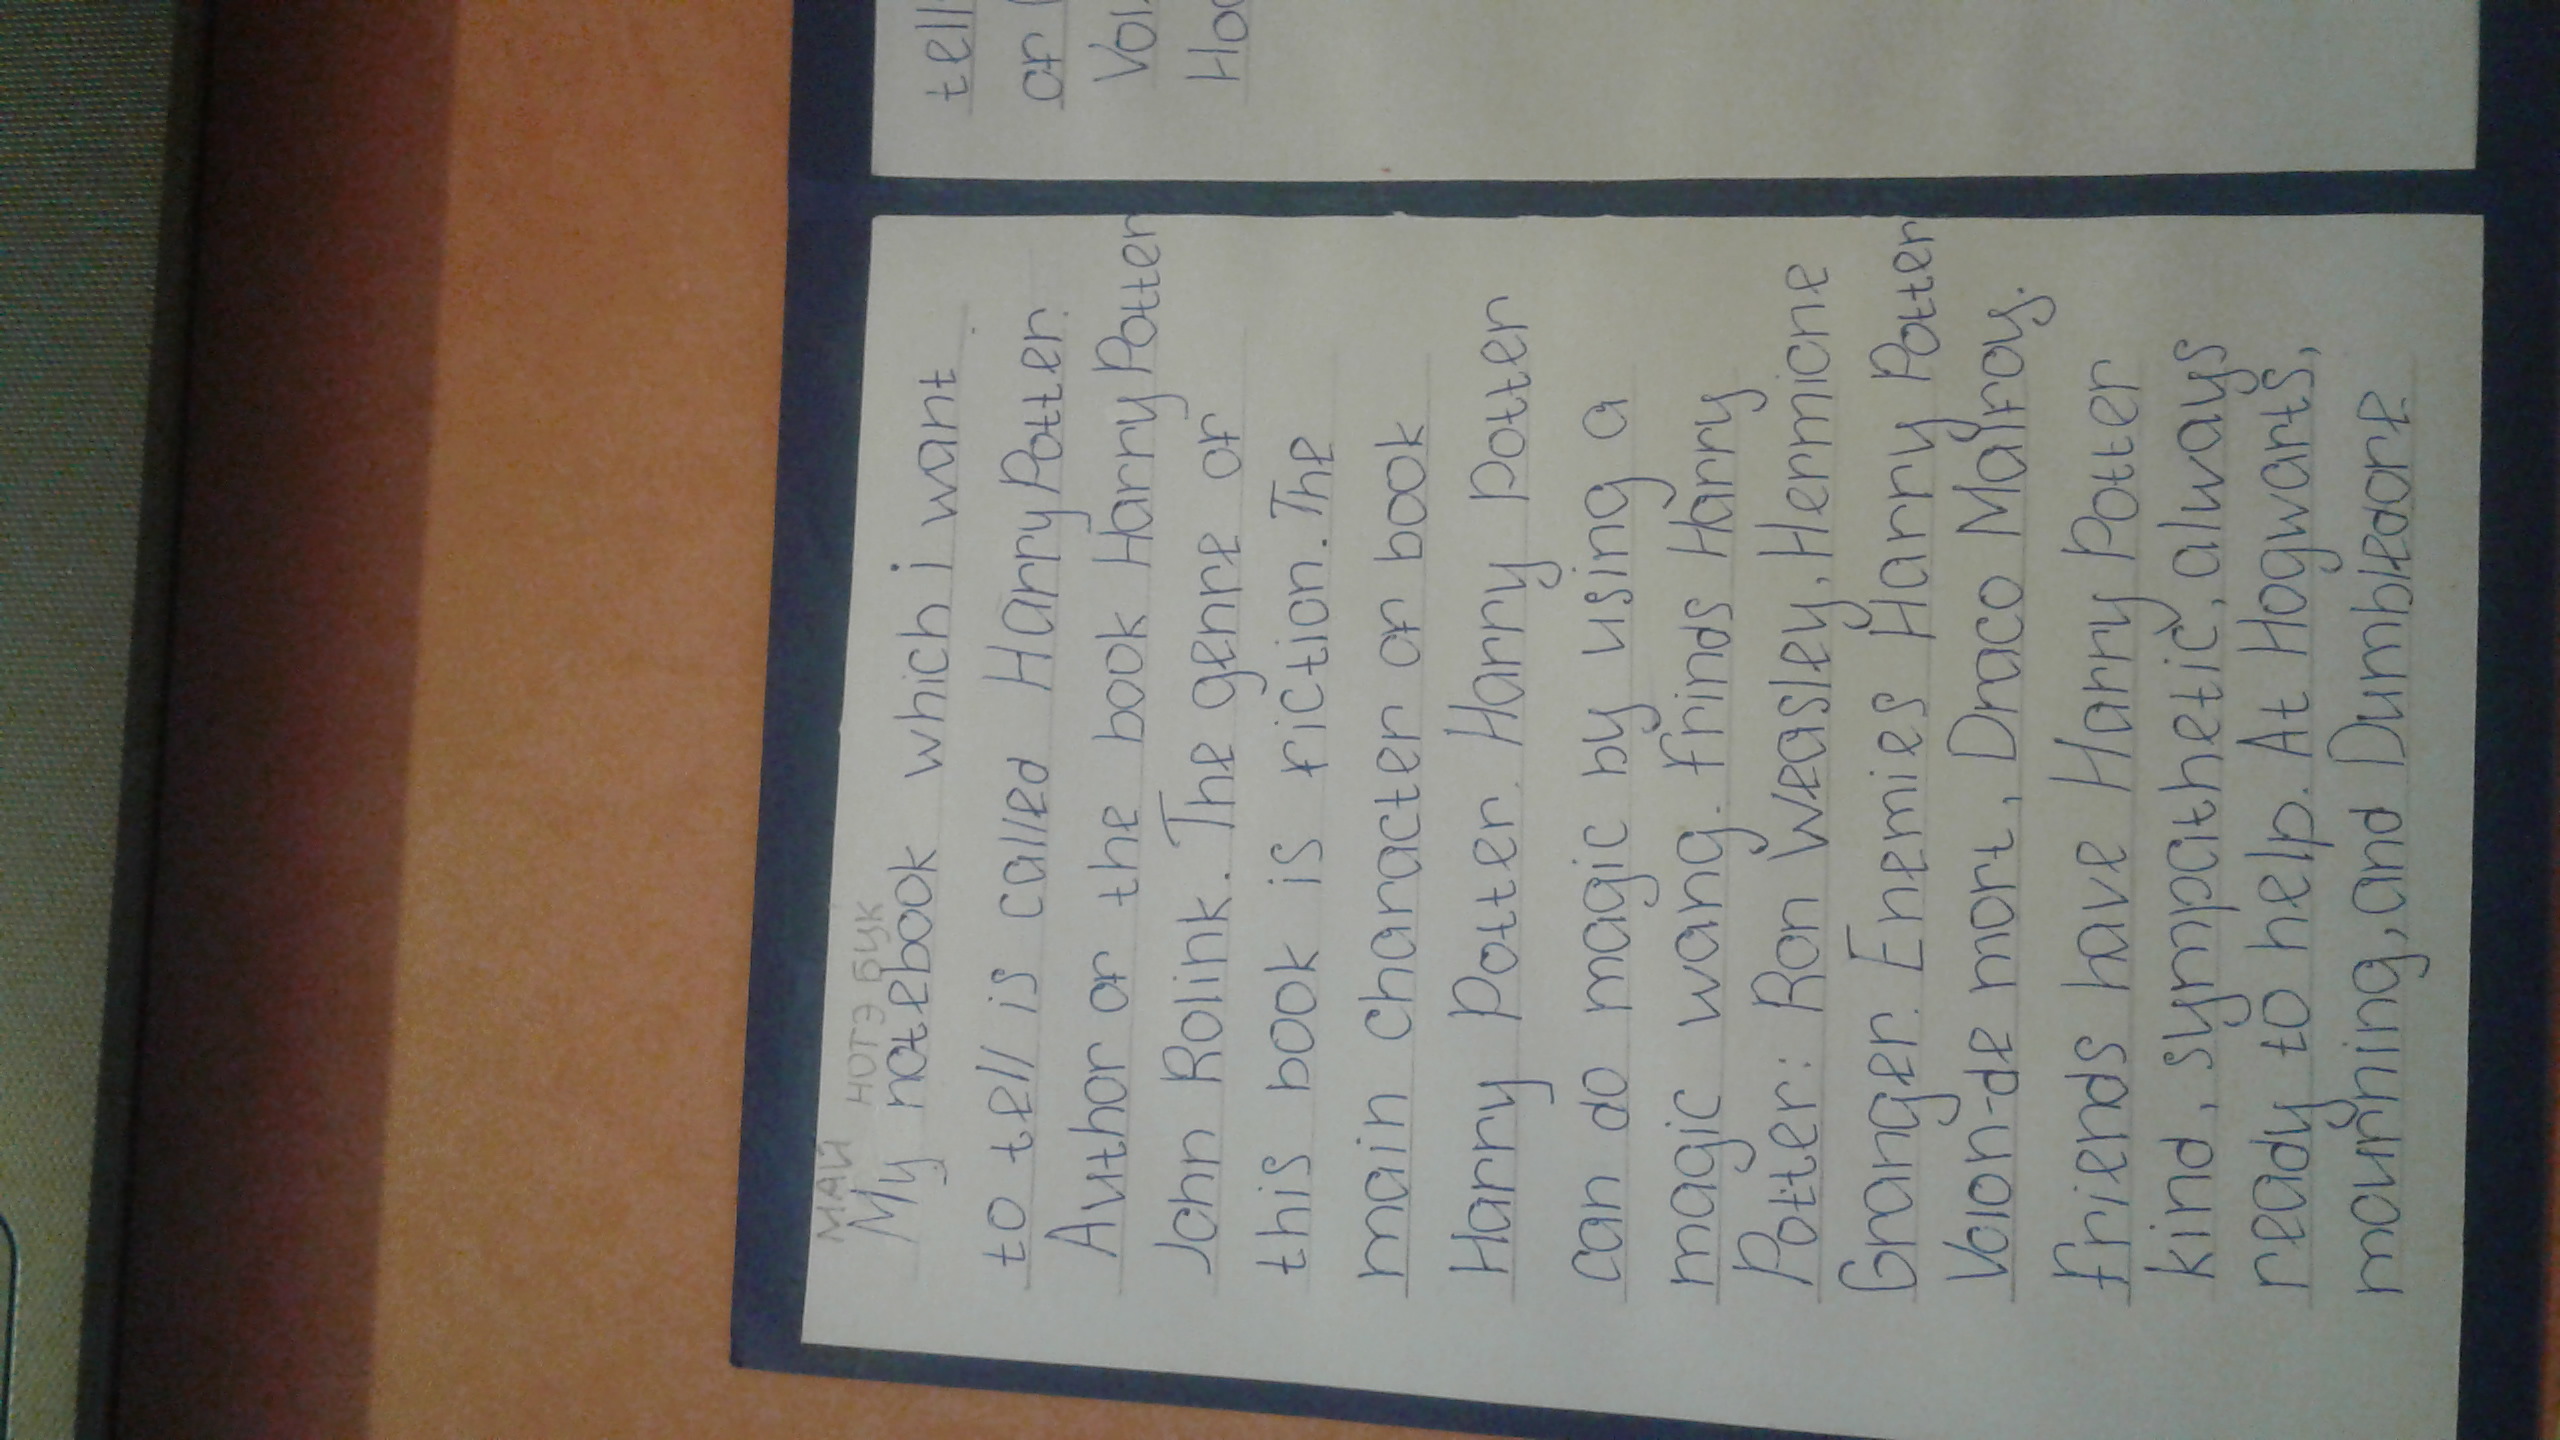 МАЙ НОТЭ БУК
My notebook which i want
to tell is called Harry Potter.
Author of the book Harry Potter
John Rolink. The genre of
this book is fiction. The
main character of book
Harry Potter. Harry Potter
can do magic by using a
magic wang. Frinds Harry
Potter: Ron Weasley, Hermione
Granger. Enemies Harry Potter
Volon-de mort, Draco Malfoy.
Friends have Harry Potter
kind, sympathetic, always
ready to help. At Hogwarts,
mourning, and Dumbledore
tell
of
Vol
Ho